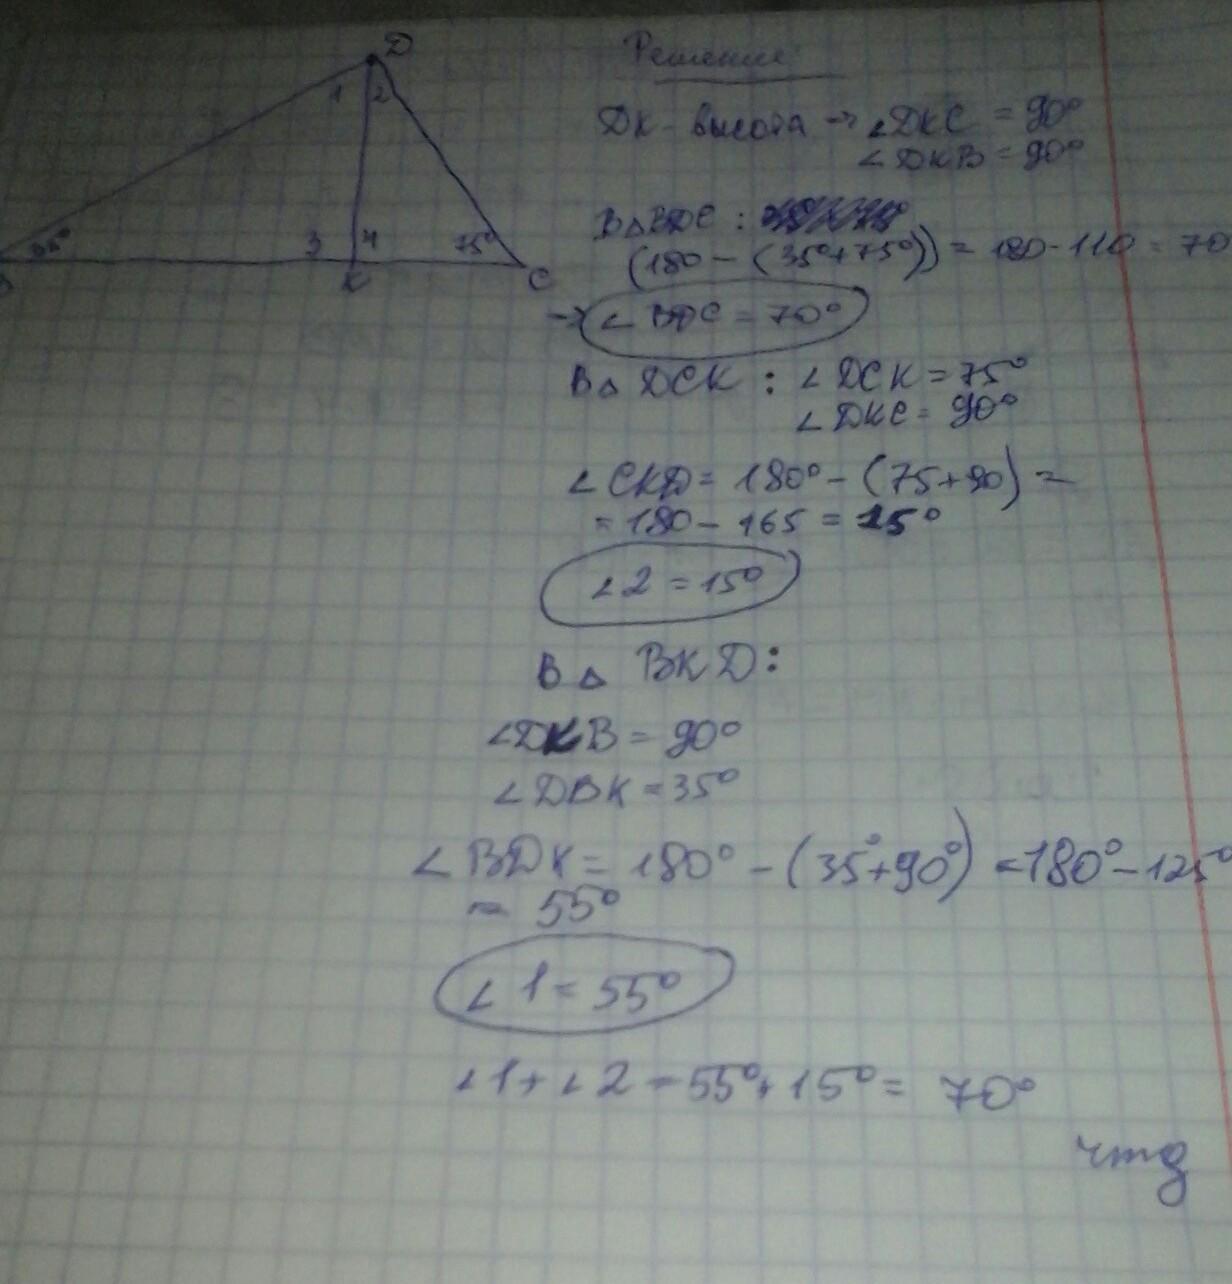 D
1 2
35°
3 4
75°
K
C
Решение
DK - высота → ∠DKC = 90°
∠DKB = 90°
В△BDC :
(180 - (35°+75°)) = 180 - 110 = 70
→ ∠ BDC = 70°
В△ DCK : ∠ DCK = 75°
∠ DKC = 90°
∠ CKD = 180° - (75+90) =
= 180 - 165 = 15°
∠2 = 15°
В △ BKD:
∠DKB = 90°
∠DBK = 35°
∠BDK = 180° - (35°+90°) = 180° - 125°
= 55°
∠ 1 = 55°
∠1 + ∠2 = 55° + 15° = 70°
чтд